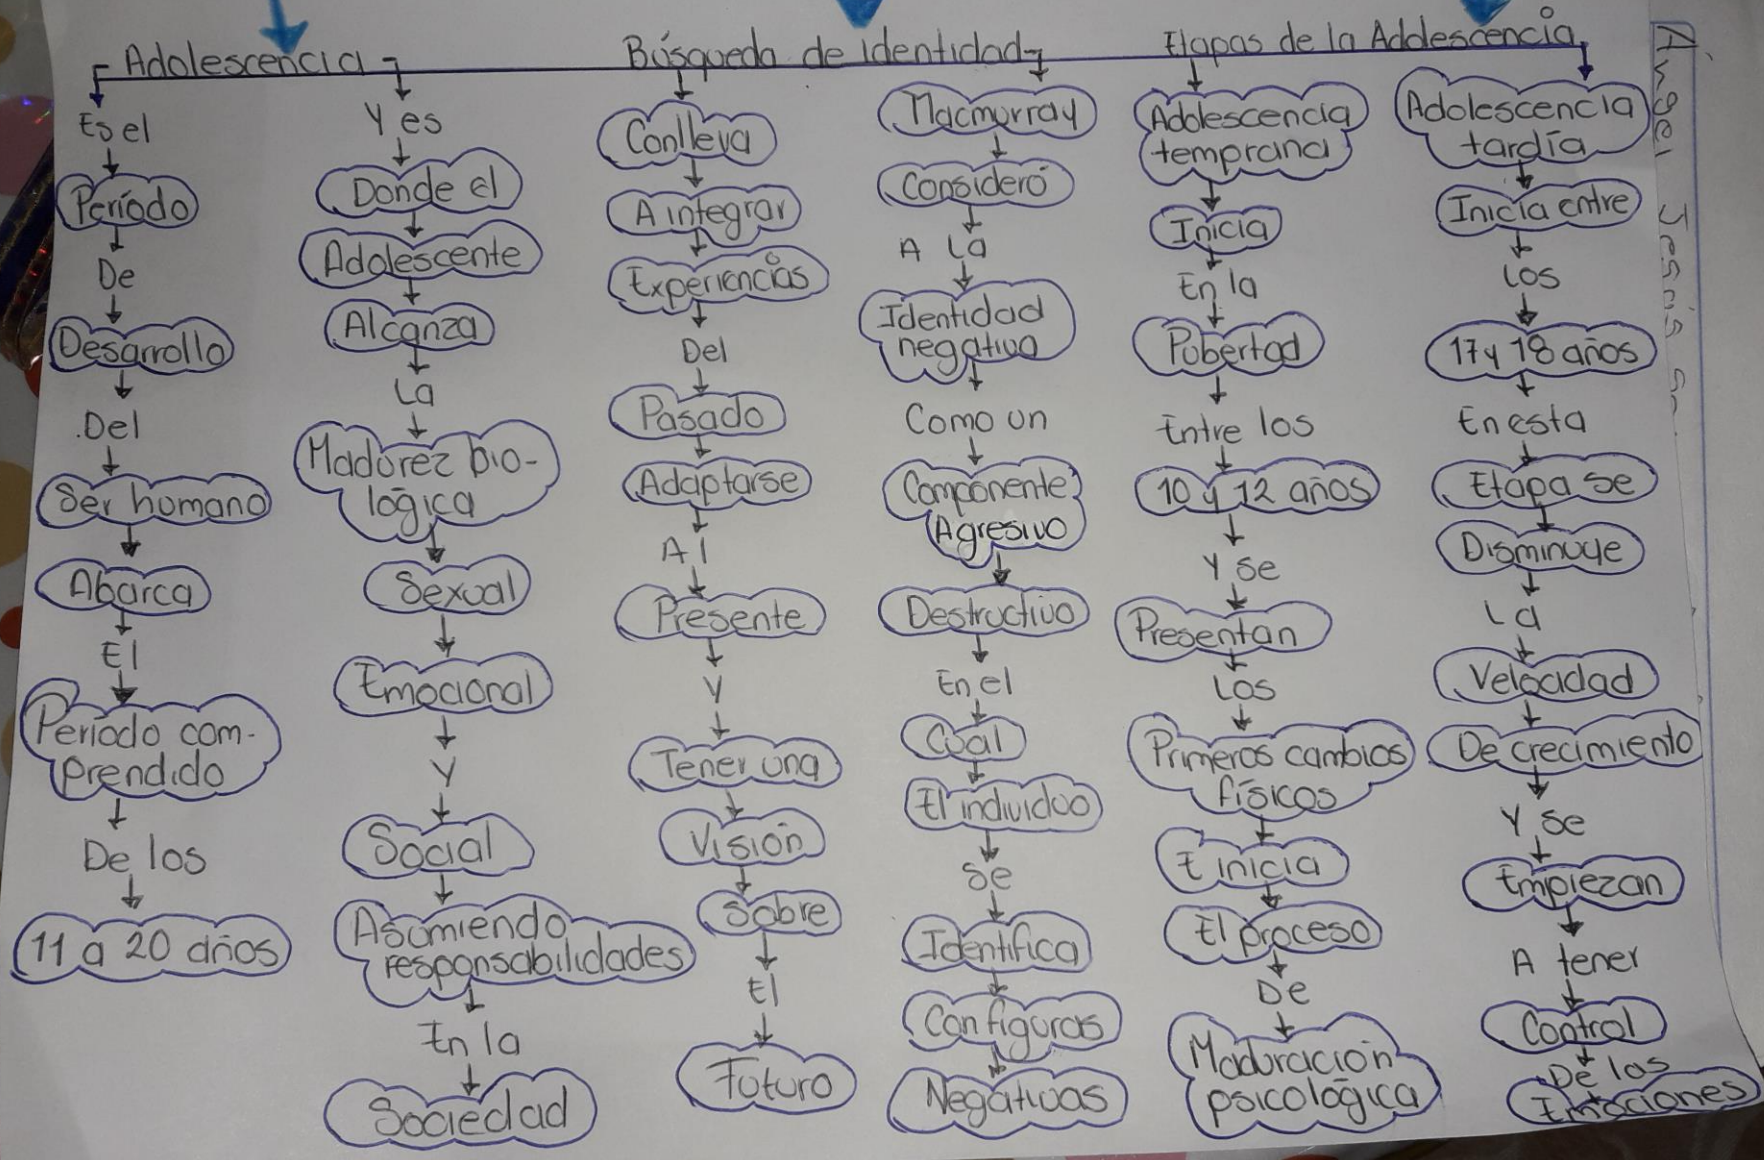 Adolescencia
Es el
Período
De
Desarrollo
Del
Ser humano
Abarca
El
Período com-
prendido
De los
11 a 20 años
Y es
Donde el
Adolescente
Alcanza
La
Madurez bio-
lógica
Sexual
Emocional
Y
Social
Asumiendo
responsabilidades
En la
Sociedad
Búsqueda de identidad
Conlleva
A integrar
Experiencias
Del
Pasado
Adaptarse
Al
Presente
Y
Tener una
Visión
Sobre
El
Futuro
Macmurray
Consideró
A la
Identidad
negativa
Como un
Componente
Agresivo
Destructivo
En el
Cual
El individuo
Se
Identifica
Con figuras
Negativas
Etapas de la Adolescencia
Adolescencia
temprana
Inicia
En la
Pubertad
Entre los
10 y 12 años
Y se
Presentan
Los
Primeros cambios
físicos
E inicia
El proceso
De
Maduración
psicológica
Adolescencia
tardía
Inicia entre
Los
17 y 18 años
En esta
Etapa se
Disminuye
La
Velocidad
De crecimiento
Y se
Empiezan
A tener
Control
De las
Emociones
Ángel Jesús S.